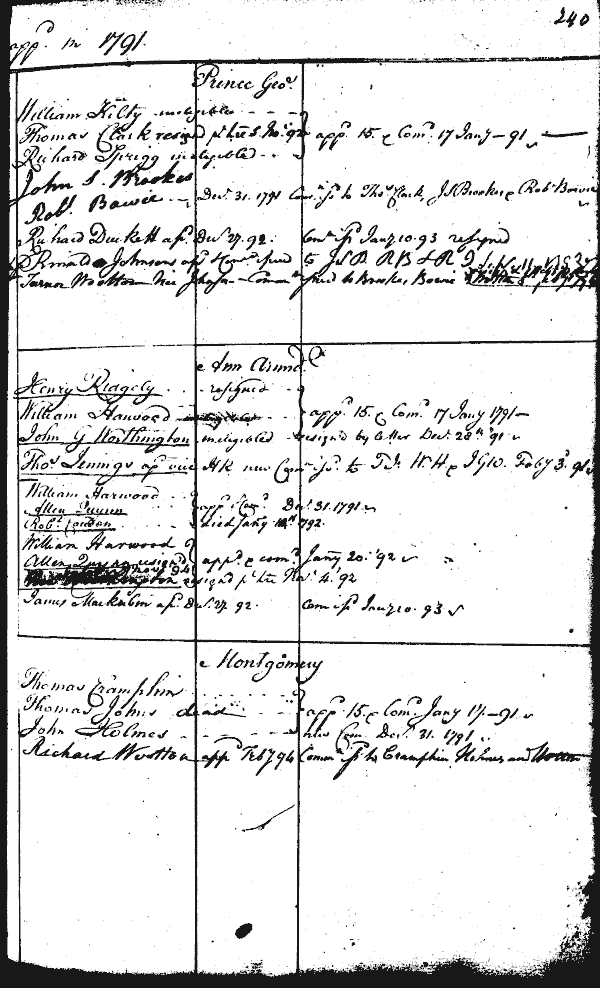 240
app.ᵈ in 1791.
Prince Geo.ˢ
William Kilty ineligible
Thomas Clark resign.ᵈ p.ʳ lre 5 No: 92 app.ᵈ 15. & Com.ᵈ 17 Jany — 91
Richard Sprigg ineligible
John S. Brookes
Rob.ᵗ Bowie Dec.ʳ 31. 1791 Com.ⁿ iss.ᵈ to Tho.ˢ Clark, J S Brookes & Rob.ᵗ Bowie
Richard Duckett ap.ᵈ Dec.ʳ 27. 92. Com.ⁿ iss.ᵈ Jany 10. 93 resigned
Johnson app.ᵈ & Com.ⁿ issued to J S B. R B & R D
Turnor Wootton vice Johnson — Common issued to Brookes, Bowie
Ann Arund.ˡ C.º
Henry Ridgely resigned
William Harwood app.ᵈ 15. & Com.ᵈ 17 Jany 1791 —
John G Worthington ineligible resigned by letter Dec.ʳ 28.ᵗʰ 91
Tho.ˢ Jennings ap.ᵈ vice H R new Com.ⁿ iss.ᵈ to T J. W. H & J G W. Feby 3.ᵈ 91
William Harwood
Allen Quynn app.ᵈ & Com.ᵈ Dec.ʳ 31. 1791
Rob.ᵗ Couden died Jany 1792.
William Harwood
Allen Quynn resign.ᵈ Nov.ʳ 94 app.ᵈ & com.ᵈ Jany 20.ᵗʰ 92
resigned p.ʳ lre Nov.ʳ 4. 92
James Mackubin ap.ᵈ Dec.ʳ 27. 92. Com iss.ᵈ Jany 10. 93
Montgomery
Thomas Cramphin
Thomas Johns dead app.ᵈ 15 & Com.ᵈ Jany 17. — 91
John Holmes new Com. Dec.ʳ 31. 1791
Richard Wootton app.ᵈ Feb 7 94 Common iss.ᵈ to Cramphin, Holmes and Wootton